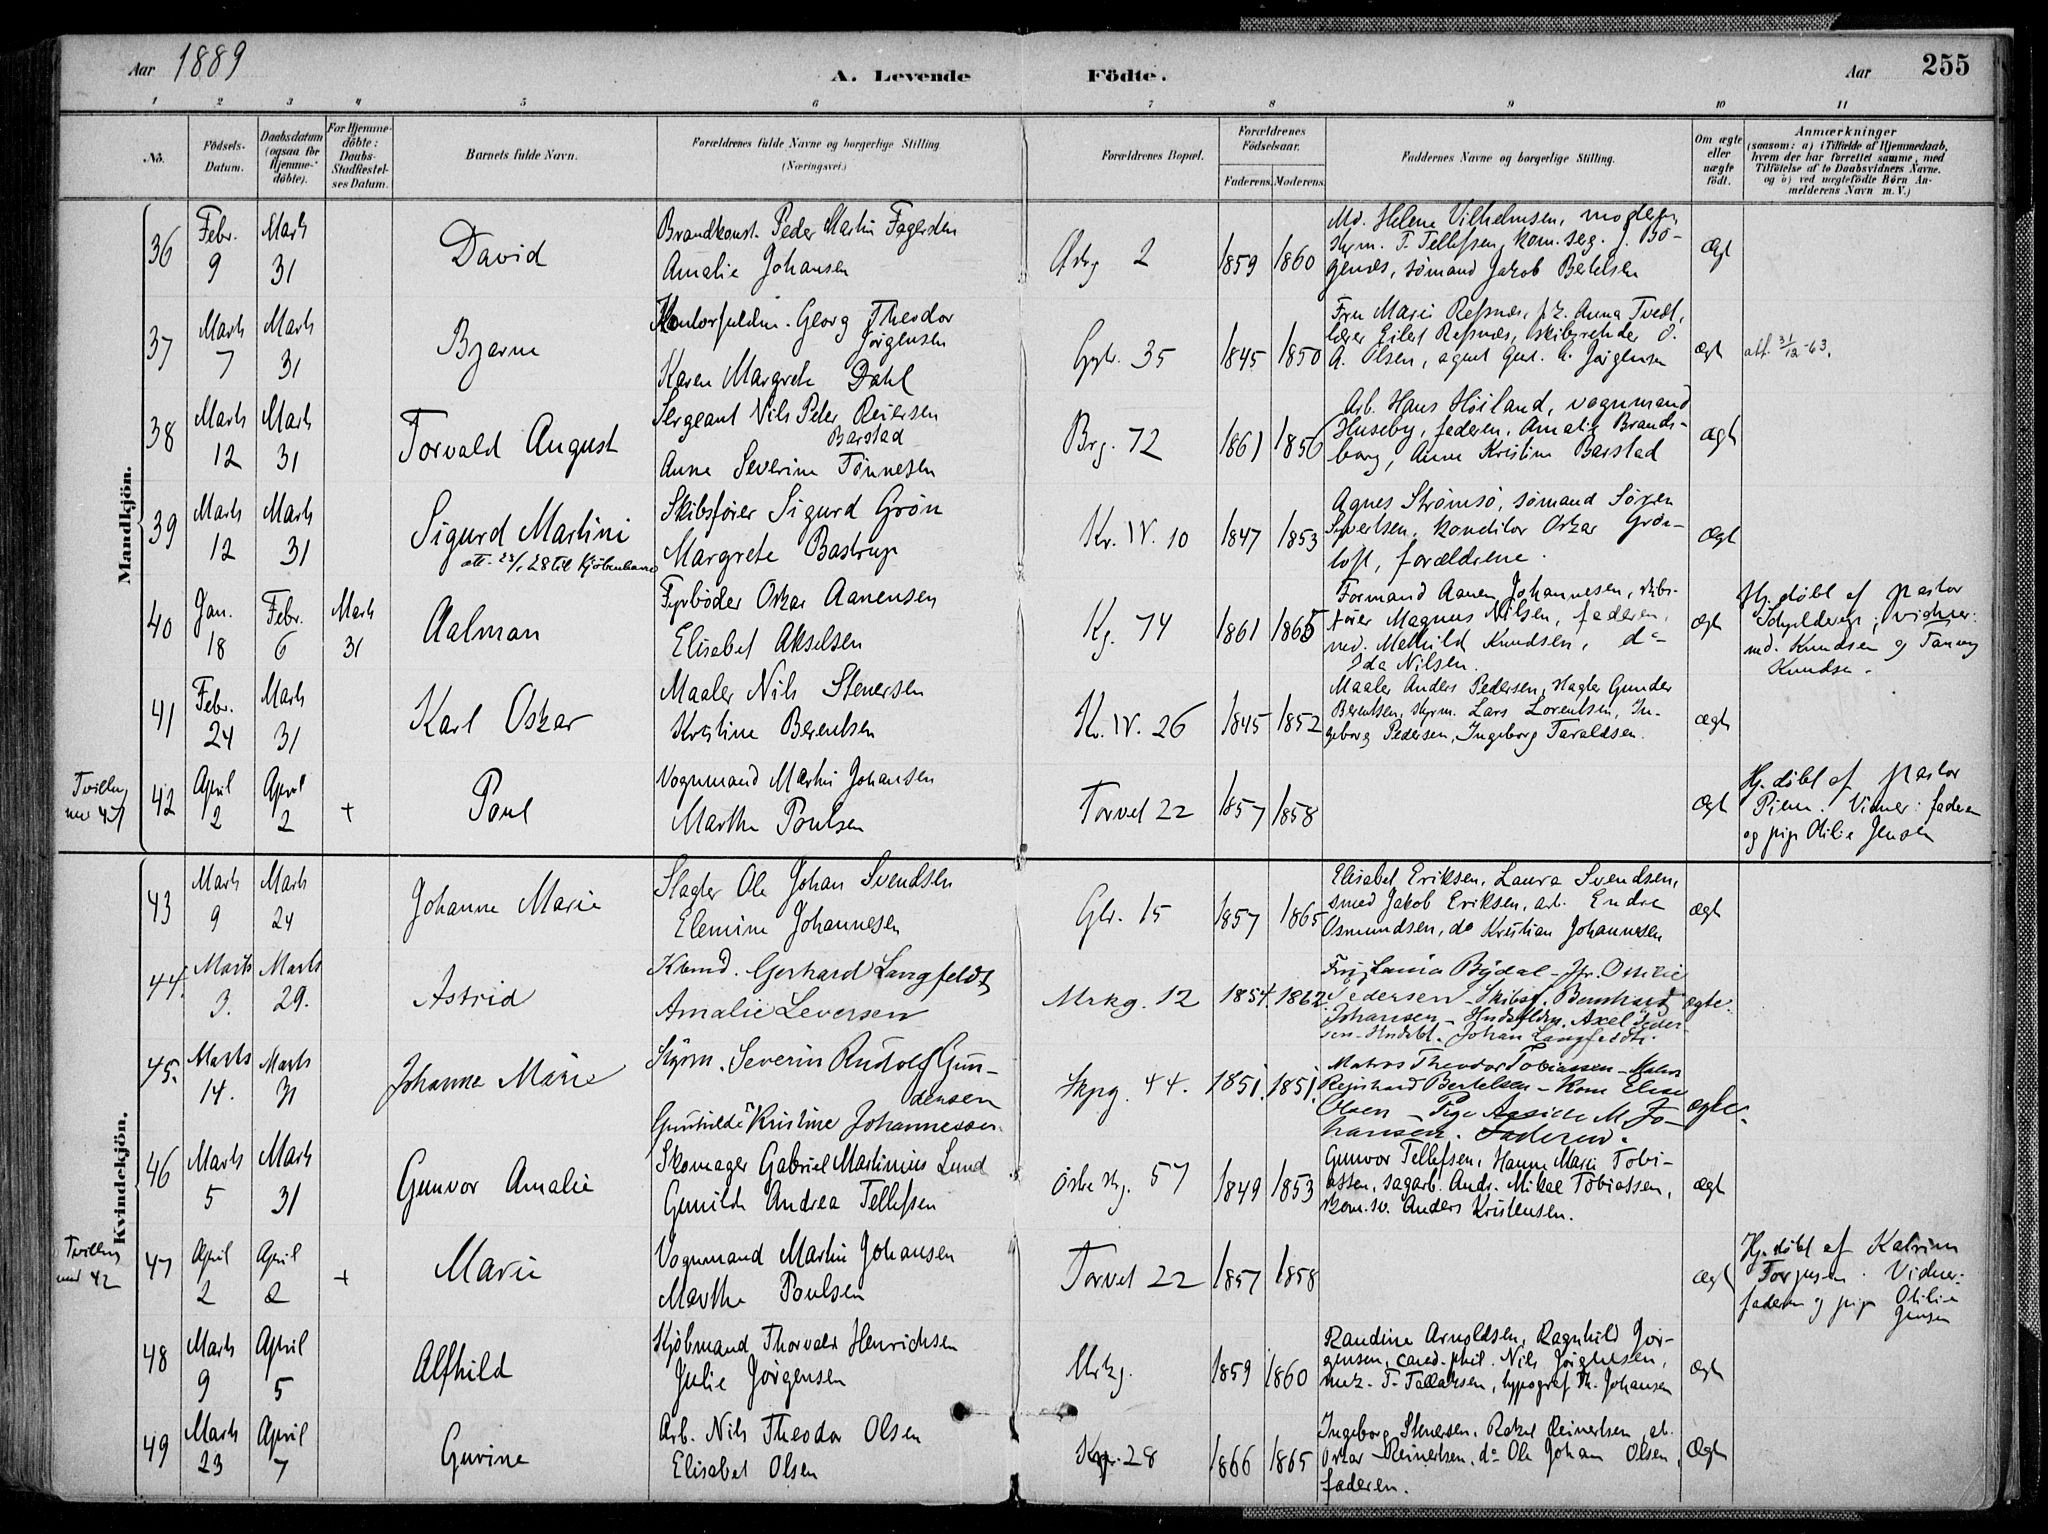 Aar 1889
A. Levende Födte.
Aar 255
1 2 3 4 5 6 7 8 9 10 11
Nö.
Födsels-Datum.
Daabsdatum (ogsaa for Hjemme-döbte).
For Hjemme-döbte: Daabs-Stadfæstel-ses Datum.
Barnets fulde Navn.
Forældrenes fulde Navne og borgerlige Stilling
(Næringsvei.)
Forældrenes Bopæl.
Forældrenes Födselsaar.
Faderens. Moderens.
Faddernes Navne og borgerlige Stilling.
Om ægte eller uægte födt.
Anmærkninger
(saasom: a) i Tilfælde af Hjemmedaab,
hvem der har forrettet samme, med
Tilföielse af to Daabsvidners Navne.
og b) ved uægtefödte Börn An-
melderens Navn m. V.)
Mandkjön.
36 Febr. 9 Marts 31
David
Peder Martin
Amalie Johansen
2 1859 1860
Md. Helene Vilhelmsen, moderen,
styrm. T. Tellefsen,
sømand Jakob Bertelsen
Ægt
37 Marts 7 Marts 31
Bjarne
Georg Theodor
Jørgensen
Karen Margrete Dahl
35 1845 1850
Fru Marie Refsnæs, Anna Tvedt,
Eilert Refsnæs, skibsreder O.
A. Olsen, agent Jørgensen
ægt
att. 31/12-63.
38 Marts 12 Marts 31
Torvald August
Sergeant Nils Peter Reiersen
Barstad
Anne Severine Tønnesen
Brg. 72 1861 1856
Arb. Hans Höiland, vognmand
Huseby, faderen, Amalie Brands-
borg, Anne Kristine Barstad
ægt
39 Marts 12 Marts 31
Sigurd Martini
28 til Kjöbenhavn
Skibsfører Sigurd Grön
Margrete Bastrup
Kr. IV. 10 1847 1853
Agnes Strømsö, sömand Sören
Syvertsen, konditor Oskar Grön-
loft, forældrene.
Ægt
40 Jan. 18 Febr. 6 Marts 31
Aalman
Fyrböder Oskar Aanensen
Elisabet Akselsen
Kg. 74 1861 1865
Formand Aanen Johannesen, skibs-
förer Magnus Nilsen, faderen,
md. Methild Knudsen, do
Ida Nilsen.
Ægt
Hj. döbt af pastor
vidner:
md. Knudsen og Fanny
Knudsen.
41 Febr. 24 Marts 31
Karl Oskar
Maaler Nils Stenersen
Kristine Berentsen
Kr. IV. 26 1845 1852
Maaler Anders Pedersen, slagter Gunder
Berentsen, styrm. Lars Lorentsen, In-
geborg Pedersen, Ingeborg Taraldsen.
ægt
Tvilling med 47
42 April 2 April 2 +
Poul
Vognmand Martin Johansen
Marthe Poulsen
Torvet 22 1857 1858
ægt
Hj. döbt af pastor
Vidner: faderen
og pige Otilie Jensen
Kvindekjön.
43 Marts 9 Marts 24
Johanne Marie
Slagter Ole Johan Svendsen
Elemine Johannesen
Glr. 15 1857 1865
Elisabet Eriksen, Laura Svendsen,
smed Jakob Eriksen, arb. Endre
Osmundsen, do Kristian Johannesen
ægt
44. Marts 3. Marts 29.
Astrid
Kbmd. Gerhard Langfeldt
Amalie Leversen
Mrkg. 12 1854. 1862
Pedersen - Skibsf. Bernhard
Johansen - Axel Peder-
sen - Johan Langfeldt.
ægte.
45. Marts 14. Marts 31
Johanne Marie
Styrm. Severin Rudolf Gun-
dersen
Gunhilda Kristine Johannessen
Skpg. 44. 1851. 1851.
Matros Theodor Tobiassen - Matros
Reinhard Bertelsen - Kone Elise
Olsen - Pige M. Jo-
hansen. Faderen.
ægte.
46 Marts 5 Marts 31
Gunvor Amalie
Skomager Gabriel Martinius Lund
Gunilde Andrea Tellefsen
57 1849 1853
Gunvor Tellefsen, Hanne Marie Tobi-
assen, sagarb. Andr. Mikael Tobiassen,
kom. sv. Anders Kristensen.
ægt
Tvilling med 42
47 April 2 April 2 +
Marie
Vognmand Martin Johansen
Marthe Poulsen
Torvet 22 1857 1858
ægt
Hj. döbt af Katrine
Vidner:
faderen og pige Otilie
Jensen
48 Marts 9 April 5
Alfhild
Kjöbmand Thorvald Henrichsen
Julie Jörgensen
Mrkg. 1859 1860
Randine Arnoldsen, Ragnhild Jör-
gensen, cand. phil. Nils Jörgensen,
typograf Th. Johansen
ægt
49 Marts 23 April 7
Guvine
Arb. Nils Theodor Olsen
Elisabet Olsen
28 1866 1865
Ingeborg Stenersen, Rakel Reinertsen, arb.
Oskar Reinertsen, do Ole Johan Olsen,
faderen.
Ægt